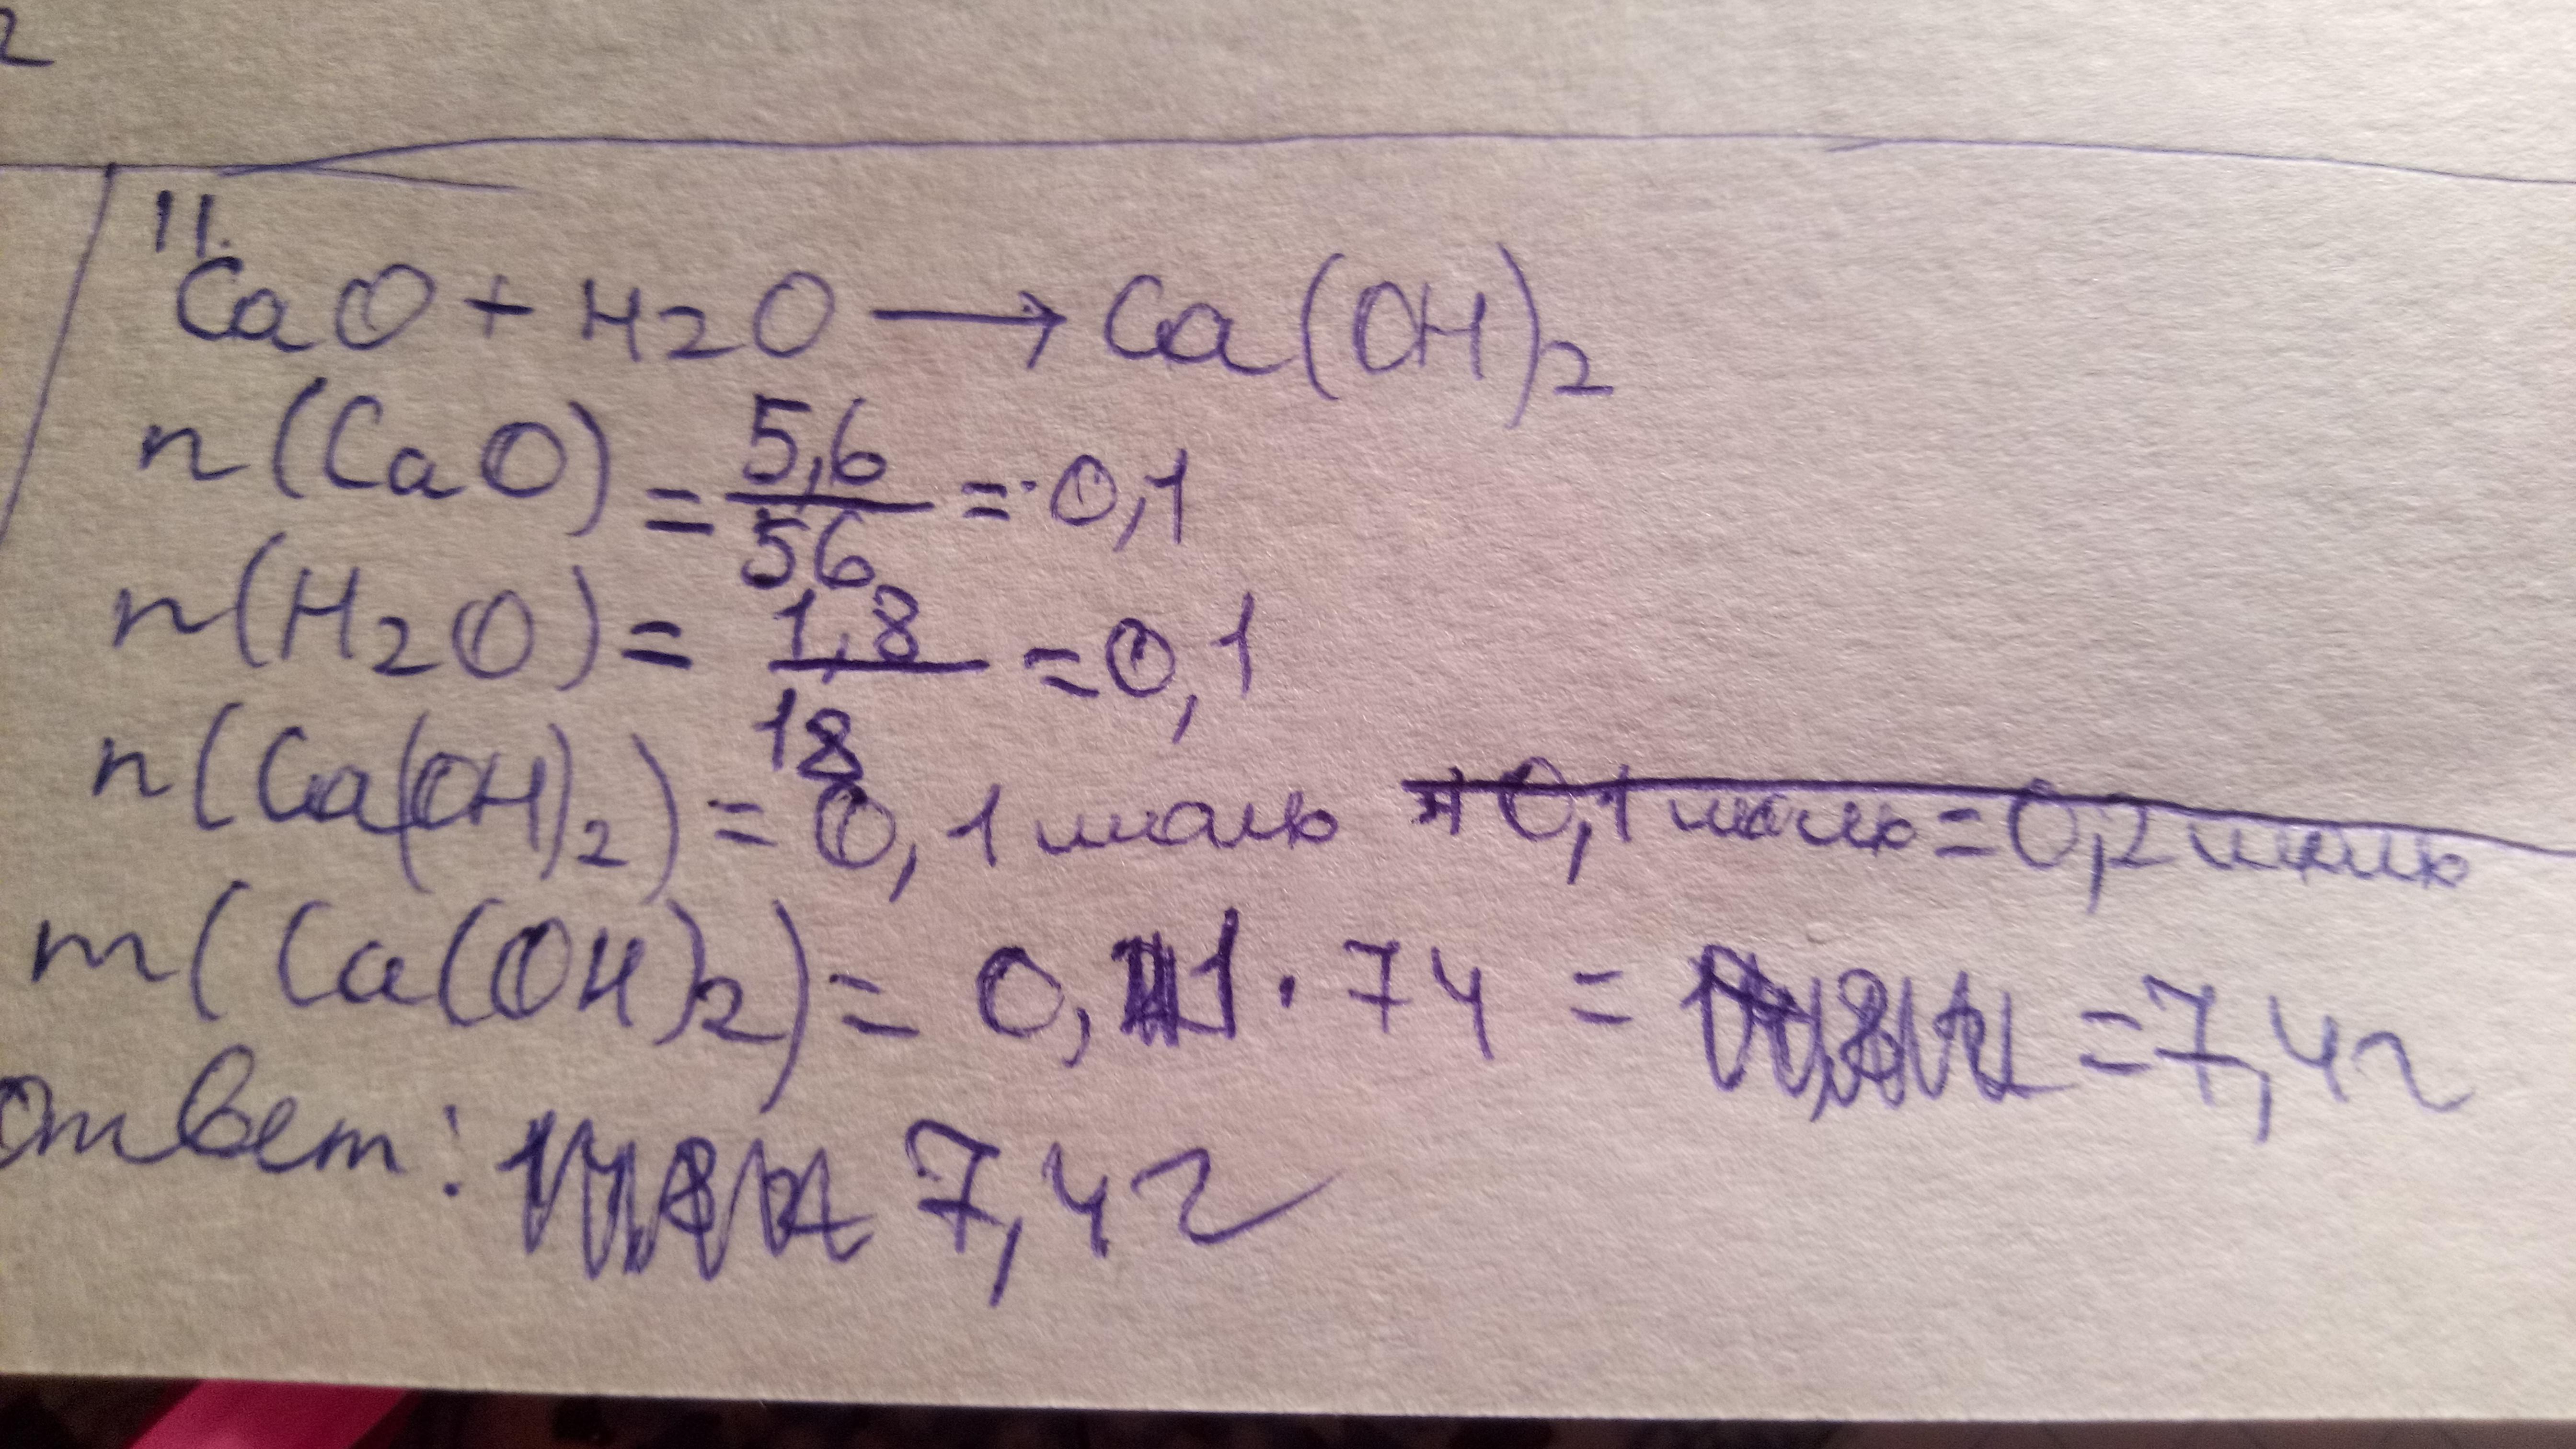 г
11.
CaO + H2O → Ca(OH)2
n(CaO) = 5,6/56 = 0,1
n(H2O) = 1,8/18 = 0,1
n(Ca(OH)2) = 0,1 моль + 0,1 моль = 0,2 моль
m(Ca(OH)2) = 0,1 · 74 = = 7,4 г
ответ: 7,4 г